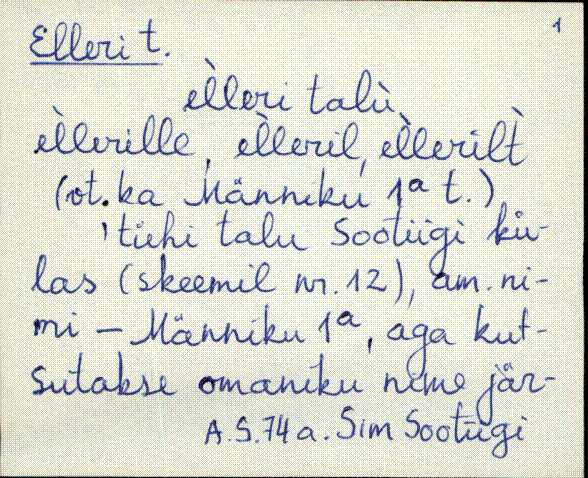 1
Elleri t.
èlleri talù
èllerille, èlleril, èllerilt
(vt. ka Männiku 1ª t.)
'tühi talu Sootiigi kü-
las (skeemil nr. 12), am. ni-
mi – Männiku 1ª, aga kut-
sutakse omaniku nime jär-
A.S. 74 a. Sim Sootiigi